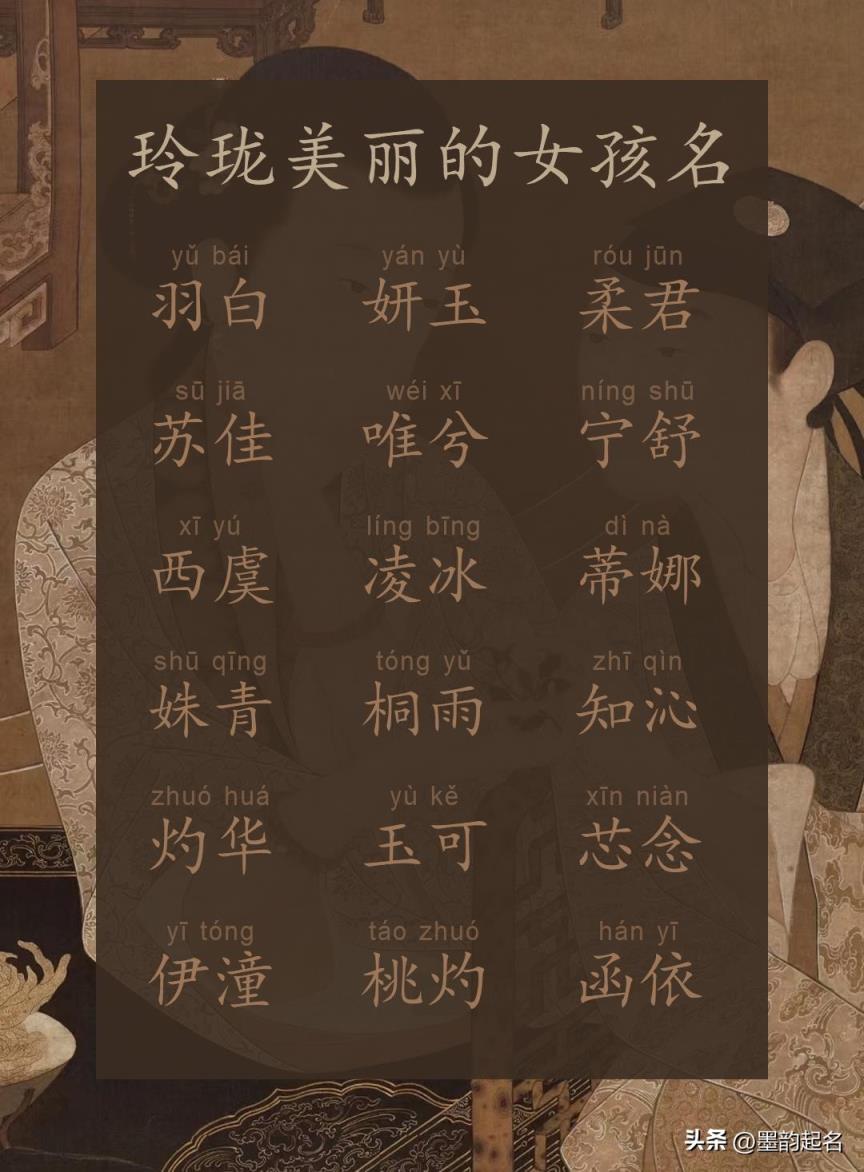 玲珑美丽的女孩名
yǔ bái yán yù róu jūn
羽白 妍玉 柔君
sū jiā wéi xī níng shū
苏佳 唯兮 宁舒
xī yú líng bīng dì nà
西虞 凌冰 蒂娜
shū qīng tóng yǔ zhī qìn
姝青 桐雨 知沁
zhuó huá yù kě xīn niàn
灼华 玉可 芯念
yī tóng táo zhuó hán yī
伊潼 桃灼 函依
头条 @墨韵起名